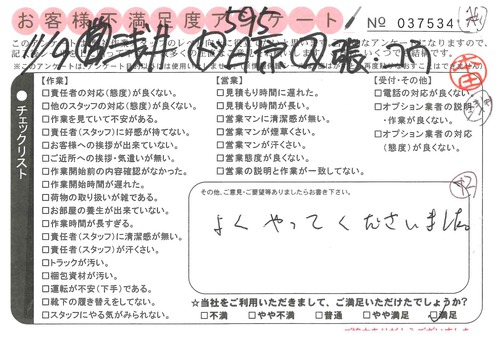 お客様不満足度アンケート
No 037534
チェックリスト
【作業】
□責任者の対応(態度)が良くない。
□他のスタッフの対応(態度)が良くない。
□作業を見ていて不安がある。
□責任者(スタッフ)に好感が持てない。
□お客様への挨拶が出来ていない。
□ご近所への挨拶・気遣いが無い。
□作業開始前の内容確認がなかった。
□作業開始時間が遅れた。
□荷物の取り扱いが雑である。
□お部屋の養生が出来ていない。
□作業時間が長すぎる。
□責任者(スタッフ)に清潔感が無い。
□責任者(スタッフ)が汗くさい。
□トラックが汚い。
□梱包資材が汚い。
□運転が不安(下手)である。
□靴下の履き替えをしてない。
□スタッフにやる気がみられない。
【営業】
□見積もり時間に遅れた。
□見積もり時間が長い。
□営業マンに清潔感が無い。
□営業マンが煙草くさい。
□営業マンが汗くさい。
□営業態度が良くない。
□営業の説明と作業が一致してない。
【受付・その他】
□電話の対応が良くない。
□オプション業者の説明
・作業が良くない。
□オプション業者の対応
(態度)が良くない。
その他、ご意見・ご要望等ありましたらお書き下さい。
よくやってくださいました。
☆当社をご利用いただきまして、ご満足いただけたでしょうか?
□不満 □やや不満 □普通 □やや満足 □満足